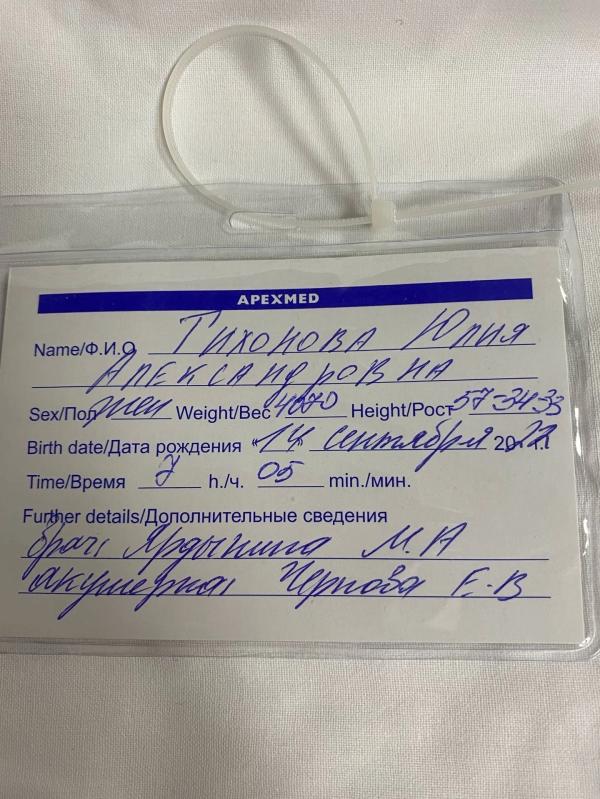 APEXMED
Name/Ф.И.О Тихонова Юлия
Александровна
Sex/Пол жен Weight/Вес 4070 Height/Рост 57-34-33
Birth date/Дата рождения "14" сентября 2022 г.
Time/Время 7 h./ч. 05 min./мин.
Further details/Дополнительные сведения
Врач: М.А
Акушерка: Чернова Е.В